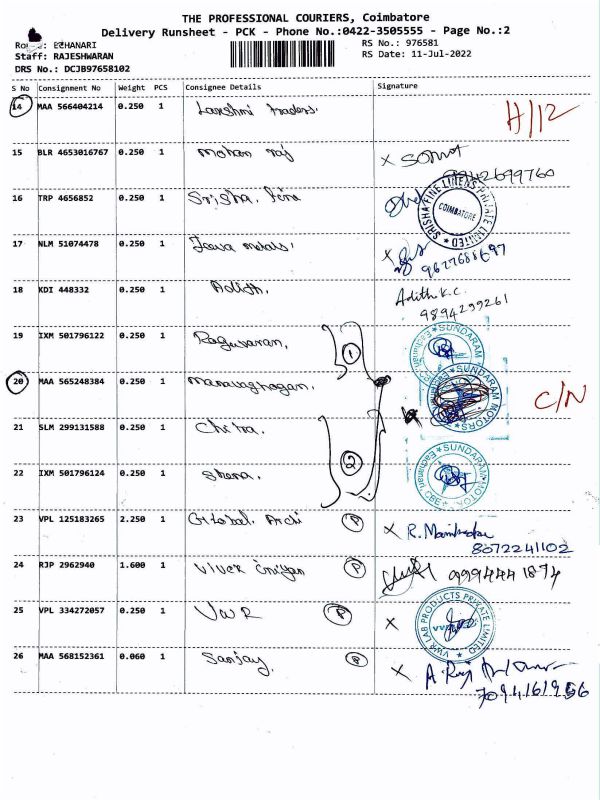 THE PROFESSIONAL COURIERS, Coimbatore
Delivery Runsheet - PCK - Phone No.:0422-3505555 - Page No.:2
Route: EZHANARI
Staff: RAJESHWARAN
DRS No.: DCJB97658102
RS No.: 976581
RS Date: 11-Jul-2022
S No Consignment No Weight PCS Consignee Details Signature
14 MAA 566404214 0.250 1 Lakshmi traders. H/12
15 BLR 4653016767 0.250 1 mohan raj X
9942699760
16 TRP 4656852 0.250 1 Srisha. Fine
SRISHA FINE LINENS PRIVATE LIMITED
COIMBATORE
17 NLM 51074478 0.250 1 Jeeva metals. X
9627688697
18 KDI 448332 0.250 1 Adith. Adith K.C.
9894299261
19 IXM 501796122 0.250 1 Raguvaran, 1
SUNDARAM
20 MAA 565248384 0.250 1 C/N
SUNDARAM MOTORS
21 SLM 299131588 0.250 1 Chitra.
22 IXM 501796124 0.250 1 2
SUNDARAM MOTORS CBE
23 VPL 125183265 2.250 1 Global. Archi P X R.
8072241102
24 RJP 2962940 1.600 1 P 9994441874
25 VPL 334272057 0.250 1 VWR P X
VWR LAB PRODUCTS PRIVATE LIMITED
26 MAA 568152361 0.060 1 Sanjay. P X A. Raj